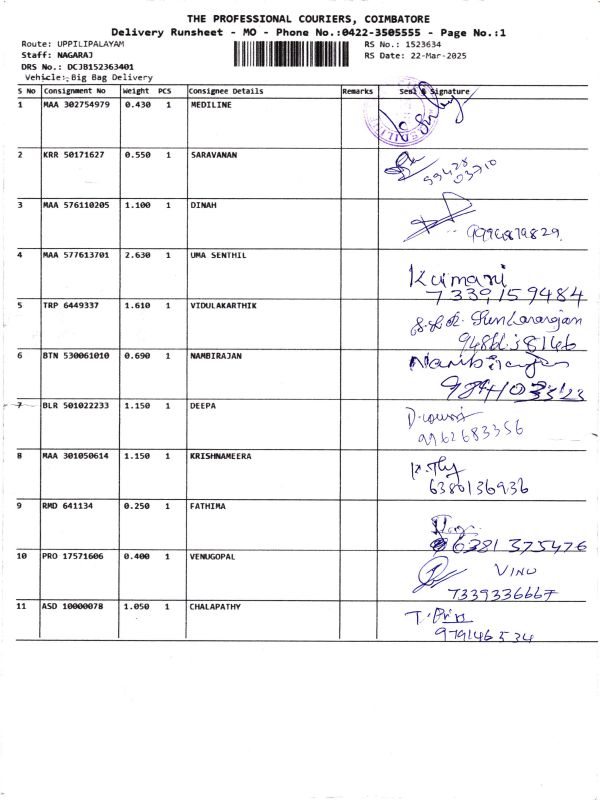 THE PROFESSIONAL COURIERS, COIMBATORE
Delivery Runsheet - MO - Phone No.:0422-3505555 - Page No.:1
Route: UPPILIPALAYAM
Staff: NAGARAJ
DRS No.: DCJB152363401
Vehicle: Big Bag Delivery
RS No.: 1523634
RS Date: 22-Mar-2025
S No Consignment No Weight PCS Consignee Details Remarks Seal & Signature
1 MAA 302754979 0.430 1 MEDILINE
2 KRR 50171627 0.550 1 SARAVANAN
99428
03710
3 MAA 576110205 1.100 1 DINAH
4 MAA 577613701 2.630 1 UMA SENTHIL
Kumari
7339159484
5 TRP 6449337 1.610 1 VIDULAKARTHIK
6 BTN 530061010 0.690 1 NAMBIRAJAN
Nambirajan
7 BLR 501022233 1.150 1 DEEPA
9962683356
8 MAA 301050614 1.150 1 KRISHNAMEERA
6380136936
9 RMD 641134 0.250 1 FATHIMA
6381 375476
10 PRO 17571606 0.400 1 VENUGOPAL
VINU
7339336667
11 ASD 10000078 1.050 1 CHALAPATHY
979146534